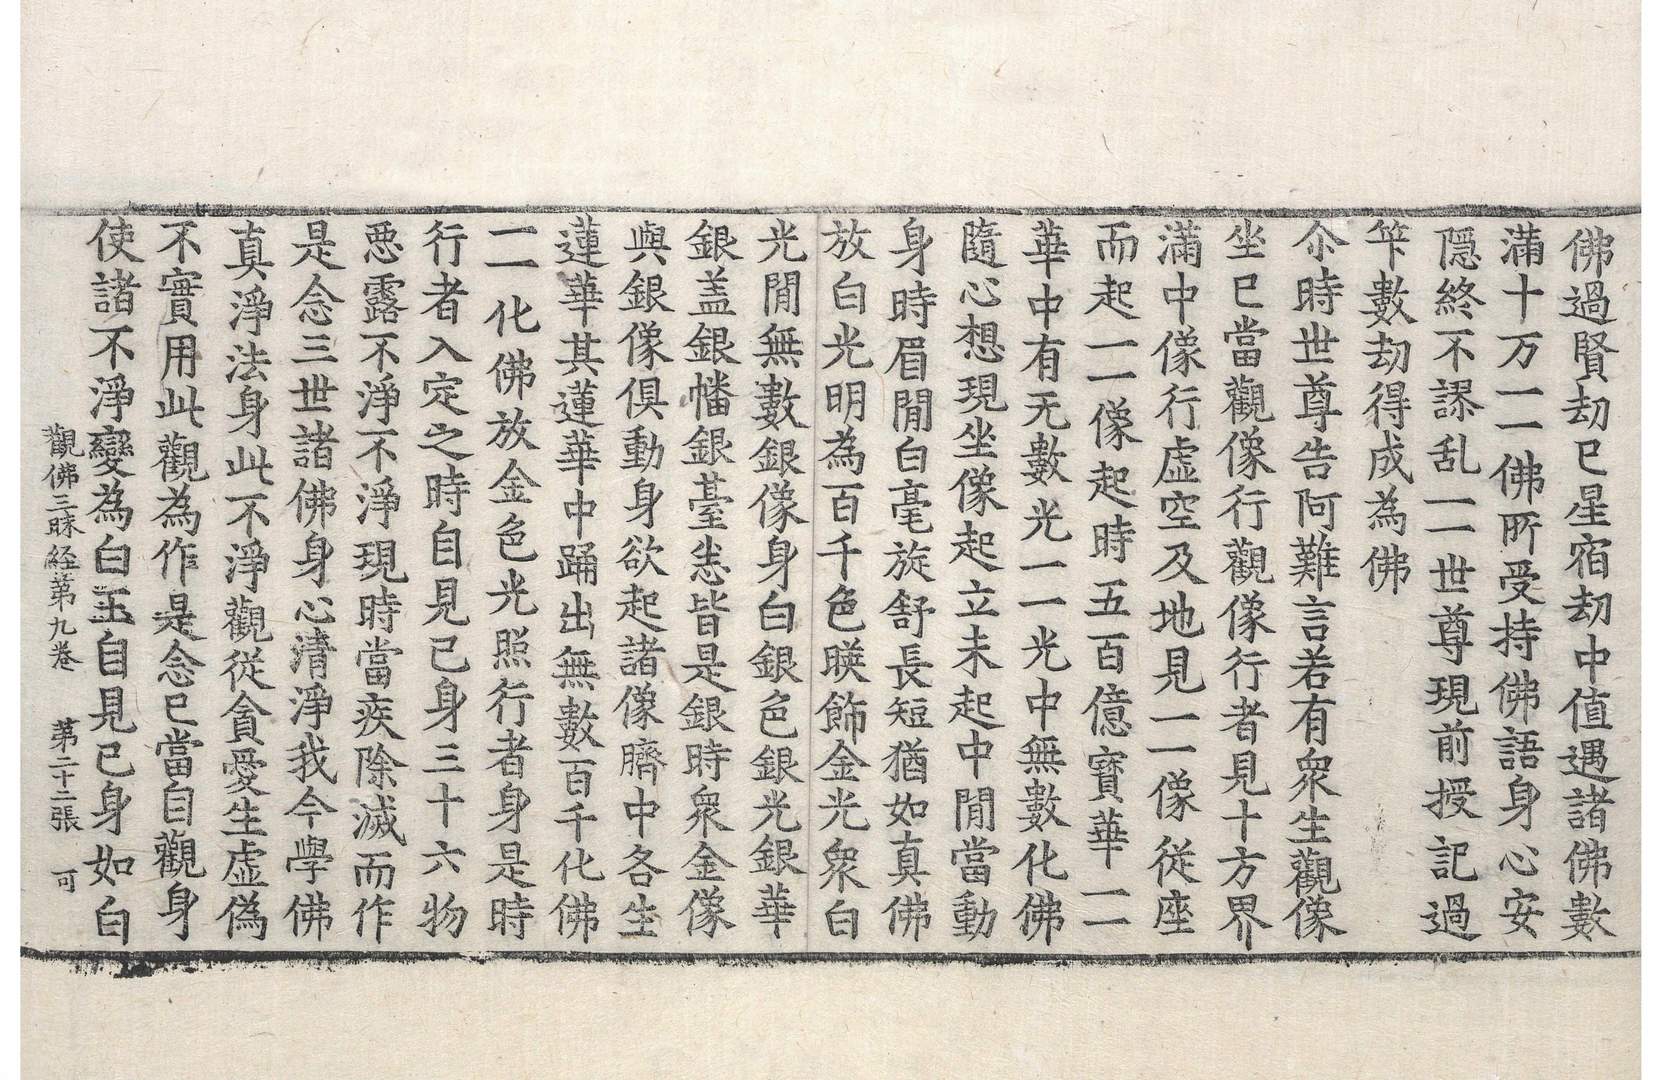 佛過賢劫已星宿劫中值遇諸佛數
滿十万一一佛所受持佛語身心安
隱終不謬乱一一世尊現前授記過
筭數劫得成為佛
尒時世尊告阿難言若有衆生觀像
坐已當觀像行觀像行者見十方界
滿中像行虛空及地見一一像從座
而起一一像起時五百億寶華一一
華中有无數光一一光中無數化佛
隨心想現坐像起立未起中閒當動
身時眉閒白毫旋舒長短猶如真佛
放白光明為百千色暎飾金光衆白
光閒無數銀像身白銀色銀光銀華
銀盖銀幡銀臺悉皆是銀時衆金像
與銀像俱動身欲起諸像臍中各生
蓮華其蓮華中踊出無數百千化佛
一一化佛放金色光照行者身是時
行者入定之時自見已身三十六物
惡露不淨不淨現時當疾除滅而作
是念三世諸佛身心清淨我今學佛
真淨法身此不淨觀從貪愛生虛偽
不實用此觀為作是念已當自觀身
使諸不淨變為白玉自見已身如白
觀佛三昧経第九卷 第二十二張 可